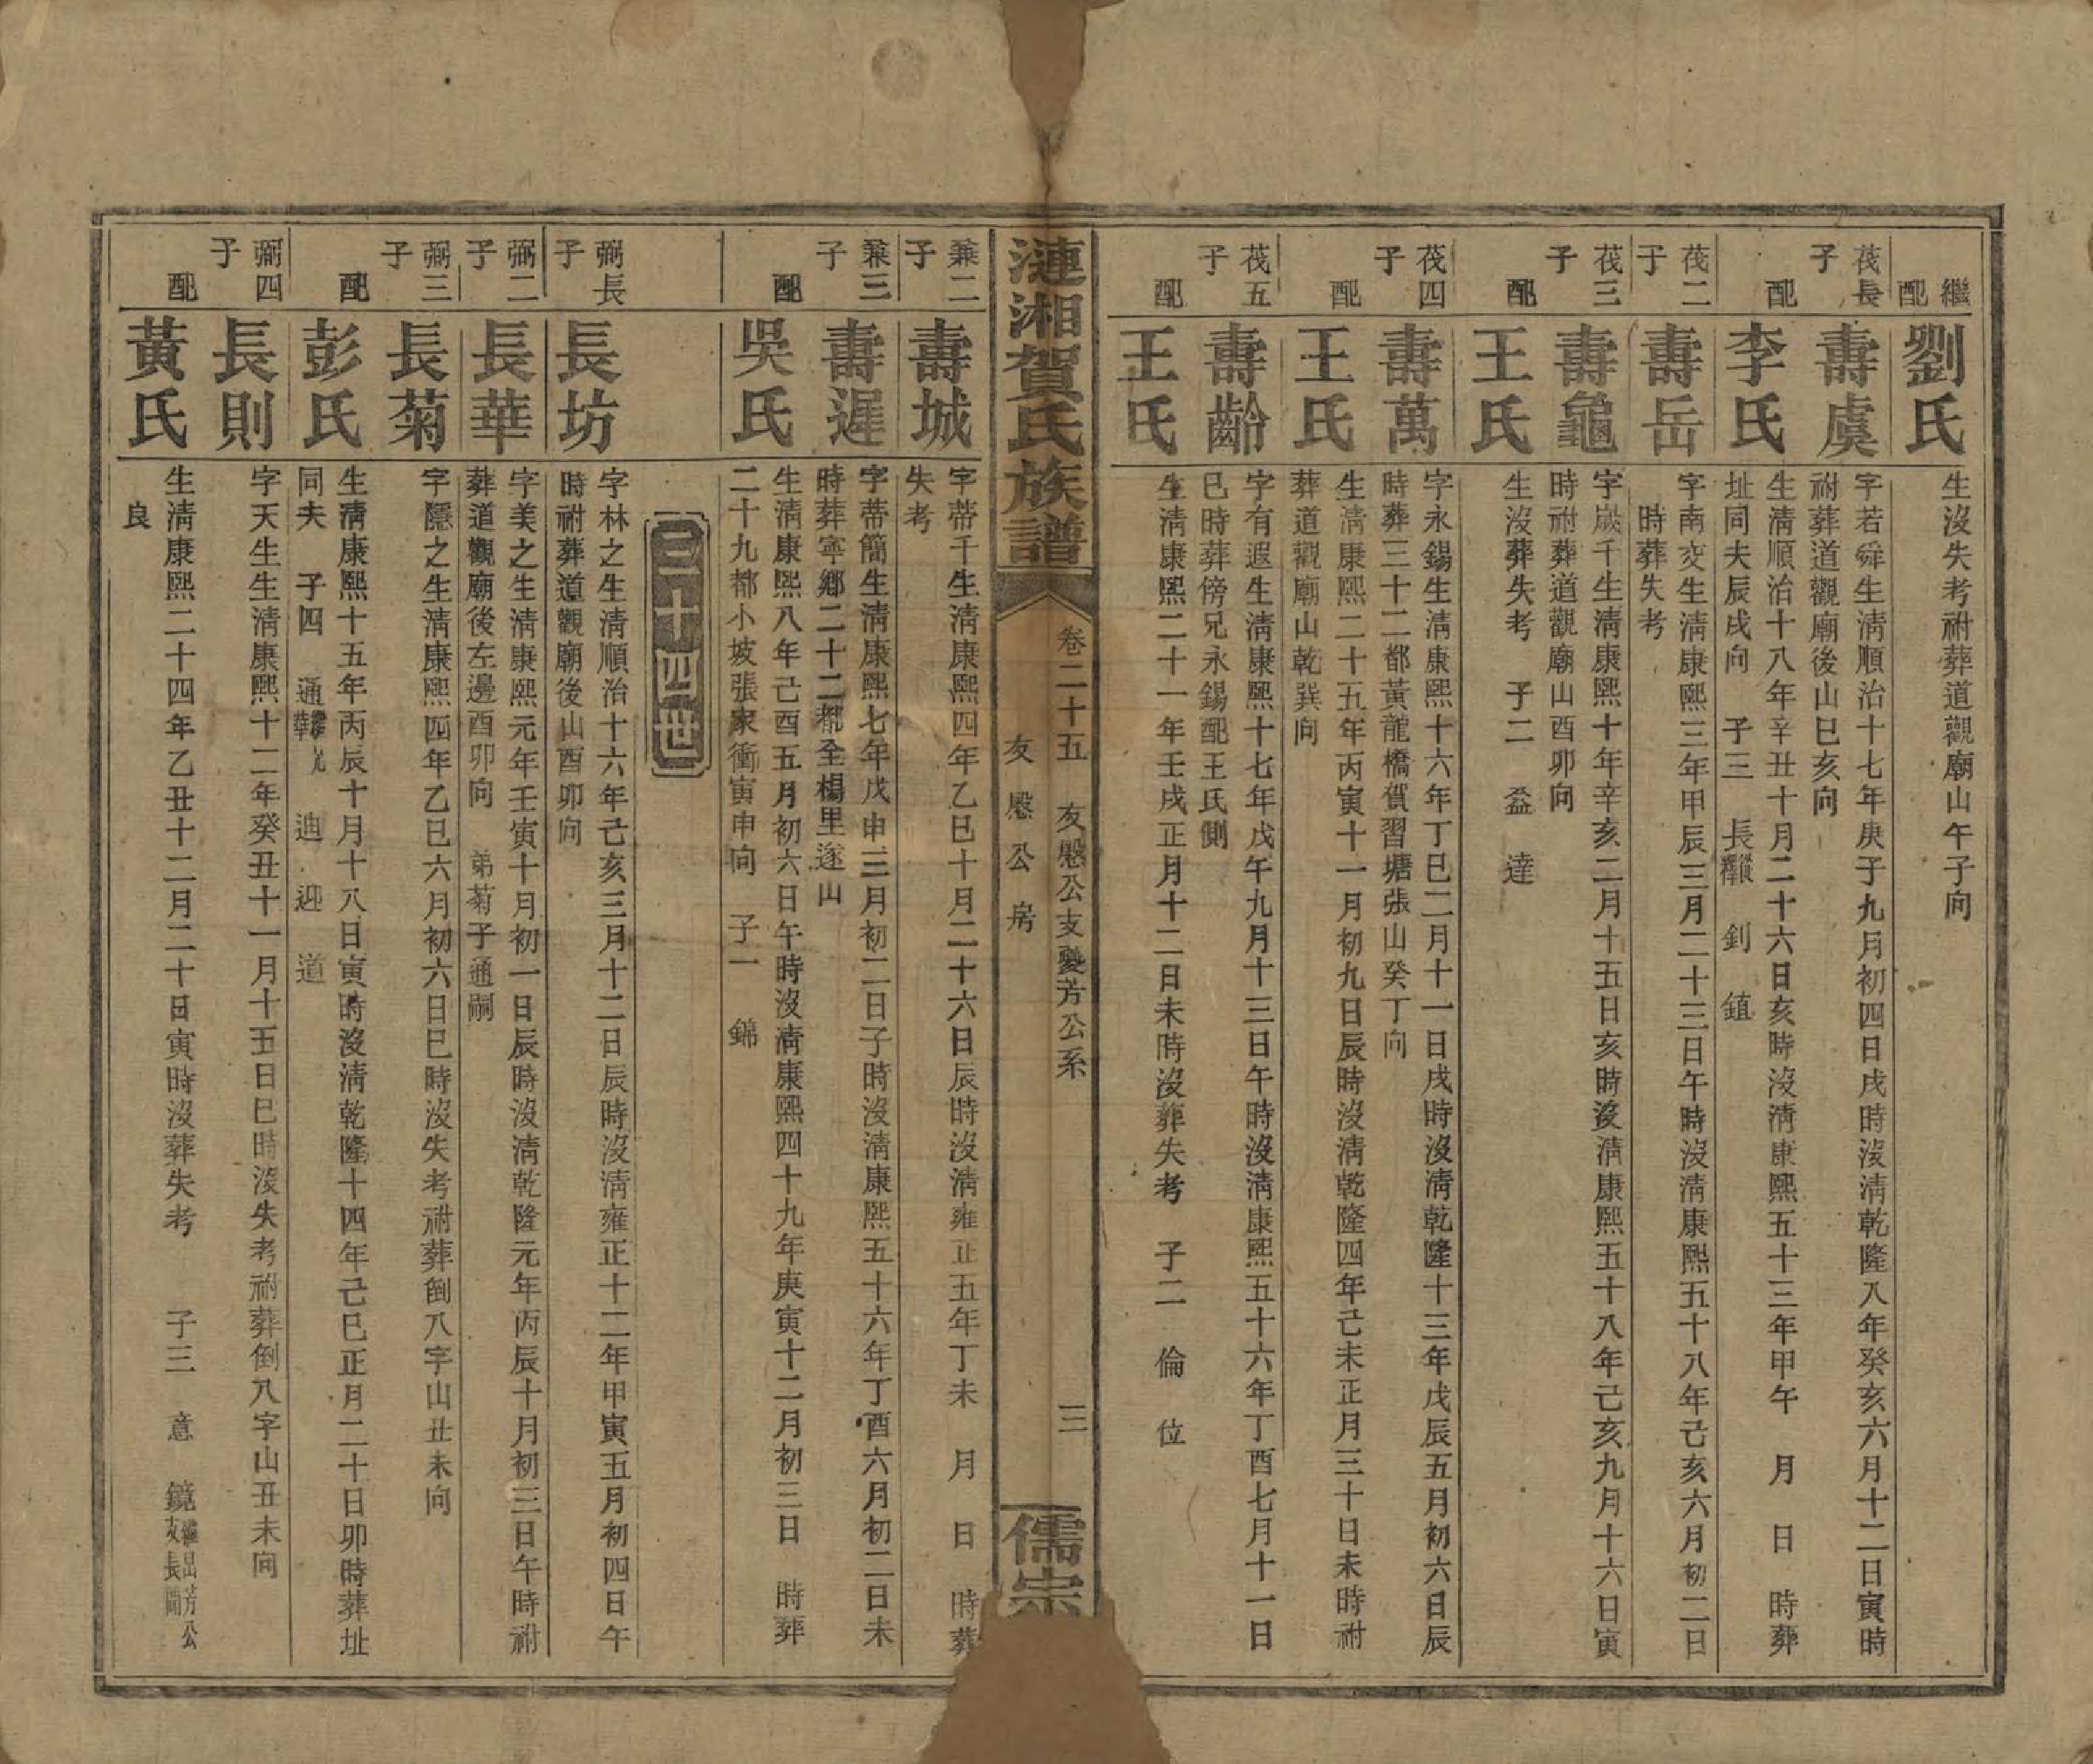 繼配
劉氏
生沒失考祔葬道觀廟山午子向
茷長子
壽虞
字若舜生淸順治十七年庚子九月初四日戌時沒淸乾隆八年癸亥六月十二日寅時
祔葬道觀廟後山巳亥向
配
李氏
生淸順治十八年辛丑十月二十六日亥時沒淸康熙五十三年甲午 月 日 時葬
址同夫辰戌向 子三 長 釗 鎮
茷二子
壽岳
字南交生淸康熙三年甲辰三月二十三日午時沒淸康熙五十八年己亥六月初二日
時葬失考
茷三子
壽龜
字歲千生淸康熙十年辛亥二月十五日亥時沒淸康熙五十八年己亥九月十六日寅
時祔葬道觀廟山酉卯向
配
王氏
生沒葬失考 子二 益 達
茷四子
壽萬
字永錫生淸康熙十六年丁巳二月十一日戌時沒淸乾隆十三年戊辰五月初六日辰
時葬三十二都黃龍橋賀習塘張山癸丁向
配
王氏
生淸康熙二十五年丙寅十一月初九日辰時沒淸乾隆四年己未正月三十日未時祔
葬道觀廟山乾巽向
茷五子
壽齡
字有遐生淸康熙十七年戊午九月十三日午時沒淸康熙五十六年丁酉七月十一日
巳時葬傍兄永錫配王氏側
配
王氏
生淸康熙二十一年壬戌正月十二日未時沒葬失考 子二 倫 位
漣湘賀氏族譜
卷二十五 友慇公支夔芳公系 三
友慇公房
儒宗
兼二子
壽城
字蒂千生淸康熙四年乙巳十月二十六日辰時沒淸雍正五年丁未 月 日 時葬
失考
兼三子
壽遲
字蒂簡生淸康熙七年戊申三月初二日子時沒淸康熙五十六年丁酉六月初二日未
時葬寧鄉二十二都全楊里遂山
配
吳氏
生淸康熙八年己酉五月初六日午時沒淸康熙四十九年庚寅十二月初三日 時葬
二十九都小坡張家衝寅申向 子一 錦
三十四世
弼長子
長坊
字林之生淸順治十六年己亥三月十二日辰時沒淸雍正十二年甲寅五月初四日午
時祔葬道觀廟後山酉卯向
弼二子
長華
字美之生淸康熙元年壬寅十月初一日辰時沒淸乾隆元年丙辰十月初三日午時祔
葬道觀廟後左邊酉卯向 弟菊子通嗣
弼三子
長菊
字隱之生淸康熙四年乙巳六月初六日巳時沒失考祔葬倒八字山丑未向
配
彭氏
生淸康熙十五年丙辰十月十八日寅時沒淸乾隆十四年己巳正月二十日卯時葬址
同夫 子四 通繼兄華 迪 迎 道
弼四子
長則
字天生生淸康熙十二年癸丑十一月十五日巳時沒失考祔葬倒八字山丑未向
配
黃氏
生淸康熙二十四年乙丑十二月二十日寅時沒葬失考 子三 意 鏡繼昌芳公支長
良